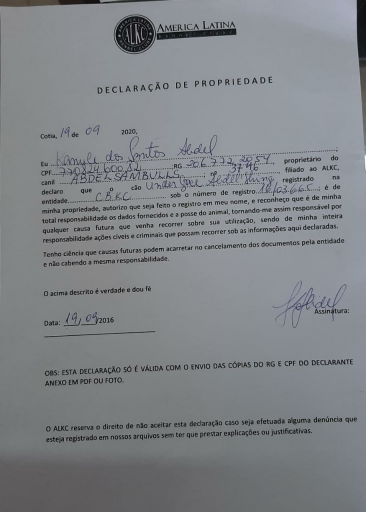 ALKC
AMERICA LATINA
DECLARAÇÃO DE PROPRIEDADE
Cotia, 19 de 09 2020,
Eu dos Santos Abdel
CPF RG proprietário do
canil ABDELSAMBULLS 3746 filiado ao ALKC,
declaro que o cão registrado na
entidade CBKC sob o número de registro 18/03.665 é de
minha propriedade, autorizo que seja feito o registro em meu nome, e reconheço que é de minha
total responsabilidade os dados fornecidos e a posse do animal, tornando-me assim responsável por
qualquer causa futura que venha recorrer sobre sua utilização, sendo de minha inteira
responsabilidade ações cíveis e criminais que possam recorrer sob as informações aqui declaradas.
Tenho ciência que causas futuras podem acarretar no cancelamento dos documentos pela entidade
e não cabendo a mesma responsabilidade.
O acima descrito é verdade e dou fé
Assinatura:
Data: 19, 09/2016
OBS: ESTA DECLARAÇÃO SÓ É VÁLIDA COM O ENVIO DAS CÓPIAS DO RG E CPF DO DECLARANTE
ANEXO EM PDF OU FOTO.
O ALKC reserva o direito de não aceitar esta declaração caso seja efetuada alguma denúncia que
esteja registrado em nossos arquivos sem ter que prestar explicações ou justificativas.